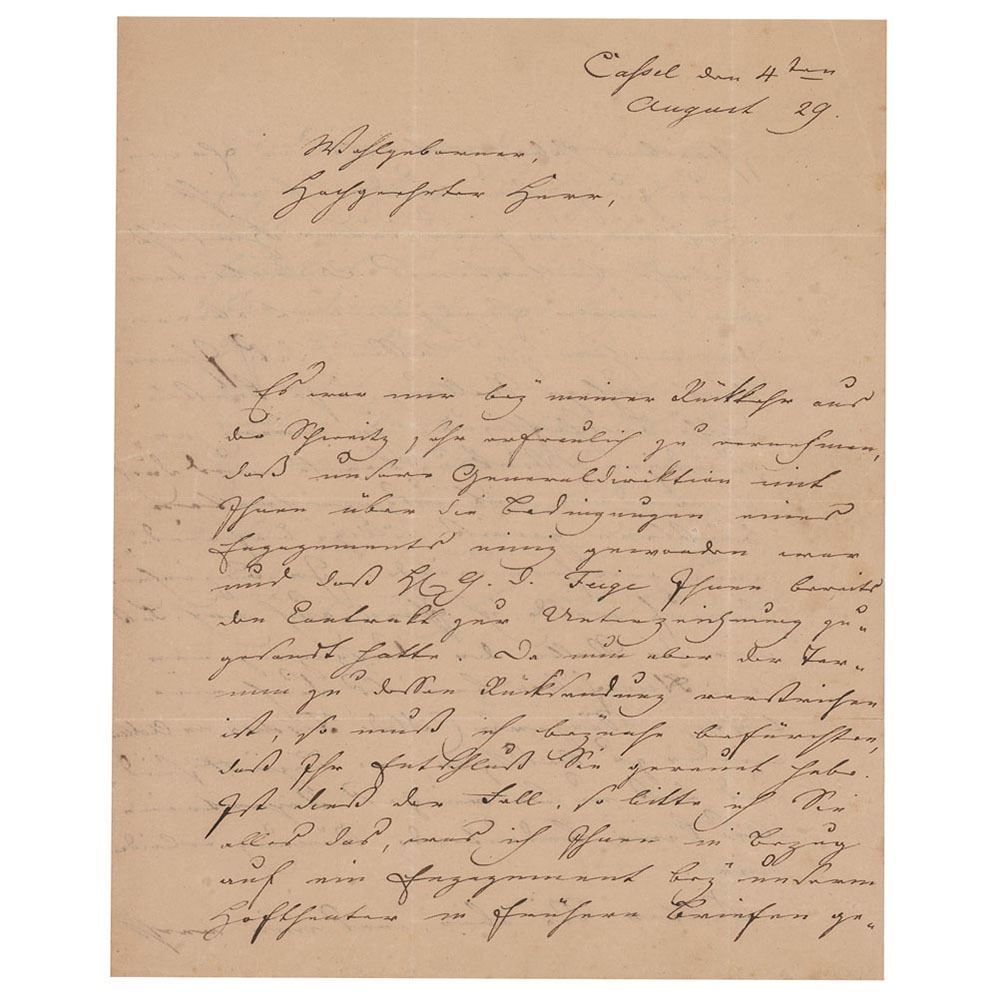 Cassel den 4ten
August 29.
Wohlgeborner,
Hochgeehrter Herr,
Es war mir bey meiner Rückkehr aus
der Schweitz sehr erfreulich zu vernehmen,
daß unsere Generaldirektion mit
Ihnen über die Bedingungen eines
Engagements einig geworden war
und daß H. G. D. Feige Ihnen bereits
den Contrakt zur Unterzeichnung zu=
gesandt hatte. Da nun aber der Ter=
min zu dessen Rücksendung verstrichen
ist, so muß ich beynahe befürchten,
daß Ihr Entschluß Sie gereuet habe.
Ist dieß der Fall, so bitte ich Sie
alles das, was ich Ihnen in Bezug
auf ein Engagement bey unserm
Hoftheater in frühern Briefen ge=